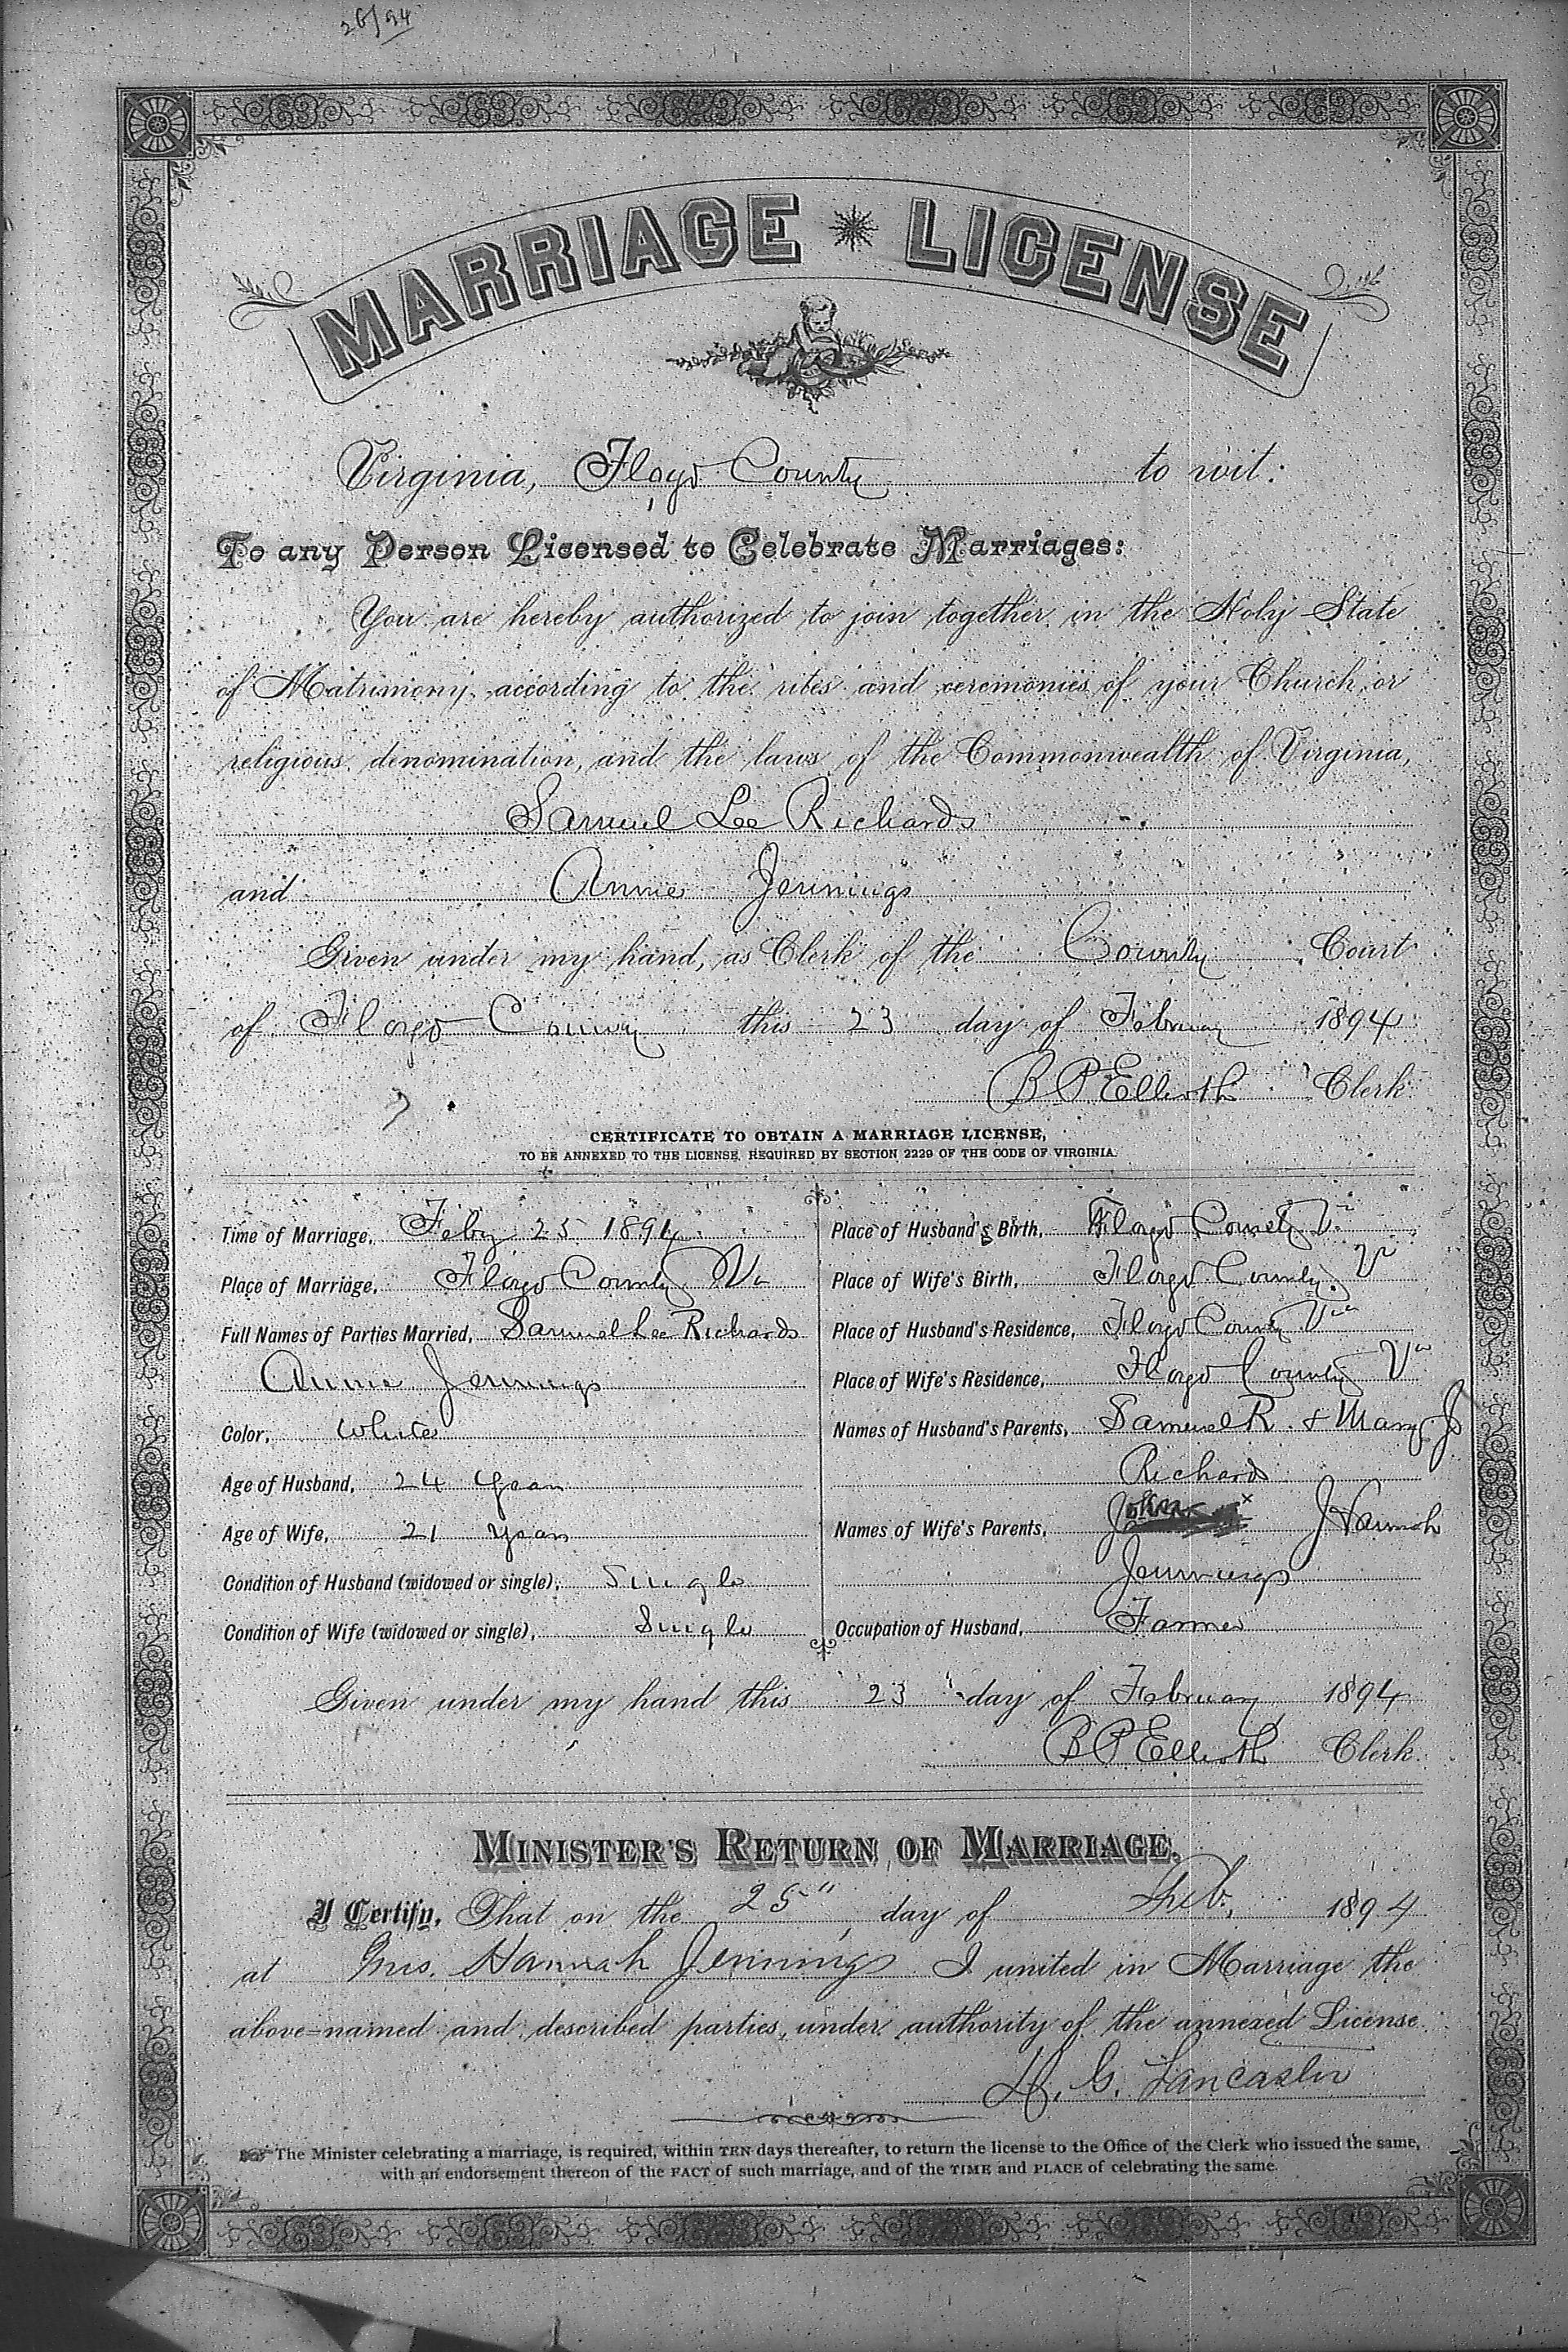 26/94
MARRIAGE LICENSE
Virginia, Floyd County to wit:
To any Person Licensed to Celebrate Marriages:
You are hereby authorized to join together in the Holy State
of Matrimony, according to the rites and ceremonies of your Church or
religious denomination, and the laws of the Commonwealth of Virginia,
Samuel Lee Richards
and Annie Jennings
Given under my hand, as Clerk of the County Court
of Floyd County this 23 day of February 1894
B P Elliott Clerk
CERTIFICATE TO OBTAIN A MARRIAGE LICENSE,
TO BE ANNEXED TO THE LICENSE, REQUIRED BY SECTION 2229 OF THE CODE OF VIRGINIA.
Time of Marriage, Feby 25 1894
Place of Marriage, Floyd County Va
Full Names of Parties Married, Samuel Lee Richards
Annie Jennings
Color, White
Age of Husband, 24 years
Age of Wife, 21 years
Condition of Husband (widowed or single), Single
Condition of Wife (widowed or single), Single
Place of Husband's Birth, Floyd County Va
Place of Wife's Birth, Floyd County Va
Place of Husband's Residence, Floyd County Va
Place of Wife's Residence, Floyd County Va
Names of Husband's Parents, Samuel R. & Mary J
Richards
Names of Wife's Parents, John Hannah
Jennings
Occupation of Husband, Farmer
Given under my hand this 23 day of February 1894
B P Elliott Clerk.
MINISTER'S RETURN OF MARRIAGE.
I Certify, That on the 25" day of Feb. 1894
at Mrs. Hannah Jennings I united in Marriage the
above-named and described parties, under authority of the annexed License.
H. G. Lancaster
The Minister celebrating a marriage, is required, within TEN days thereafter, to return the license to the Office of the Clerk who issued the same,
with an endorsement thereon of the FACT of such marriage, and of the TIME and PLACE of celebrating the same.